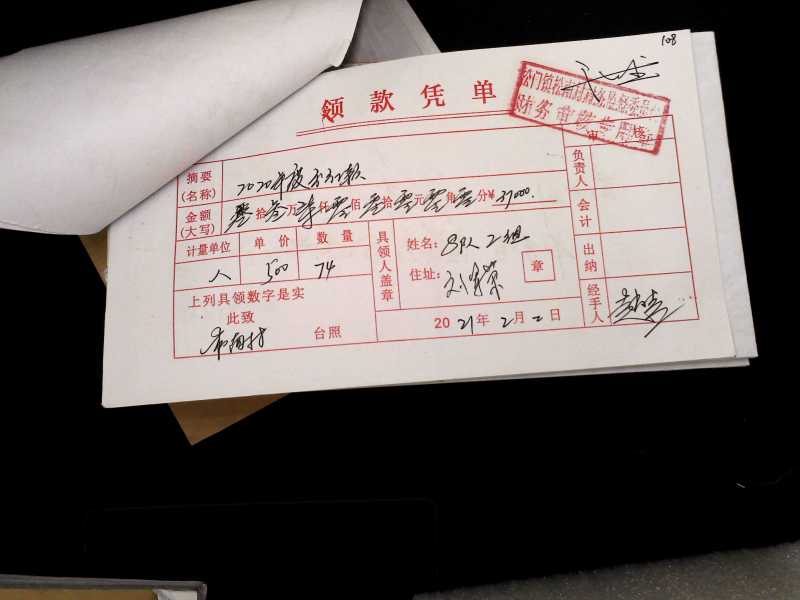 108
领款凭单
摘要(名称) 2020年度分配款
金额(大写) 拾叁万柒仟零佰零拾零元零角零分¥37000.
计量单位 单价 数量
人 500 74
上列具领数字是实
此致
台照
具领人盖章
姓名：8队2组
住址：刘荣
章
2021年2月2日
审核
负责人
会计
出纳
经手人